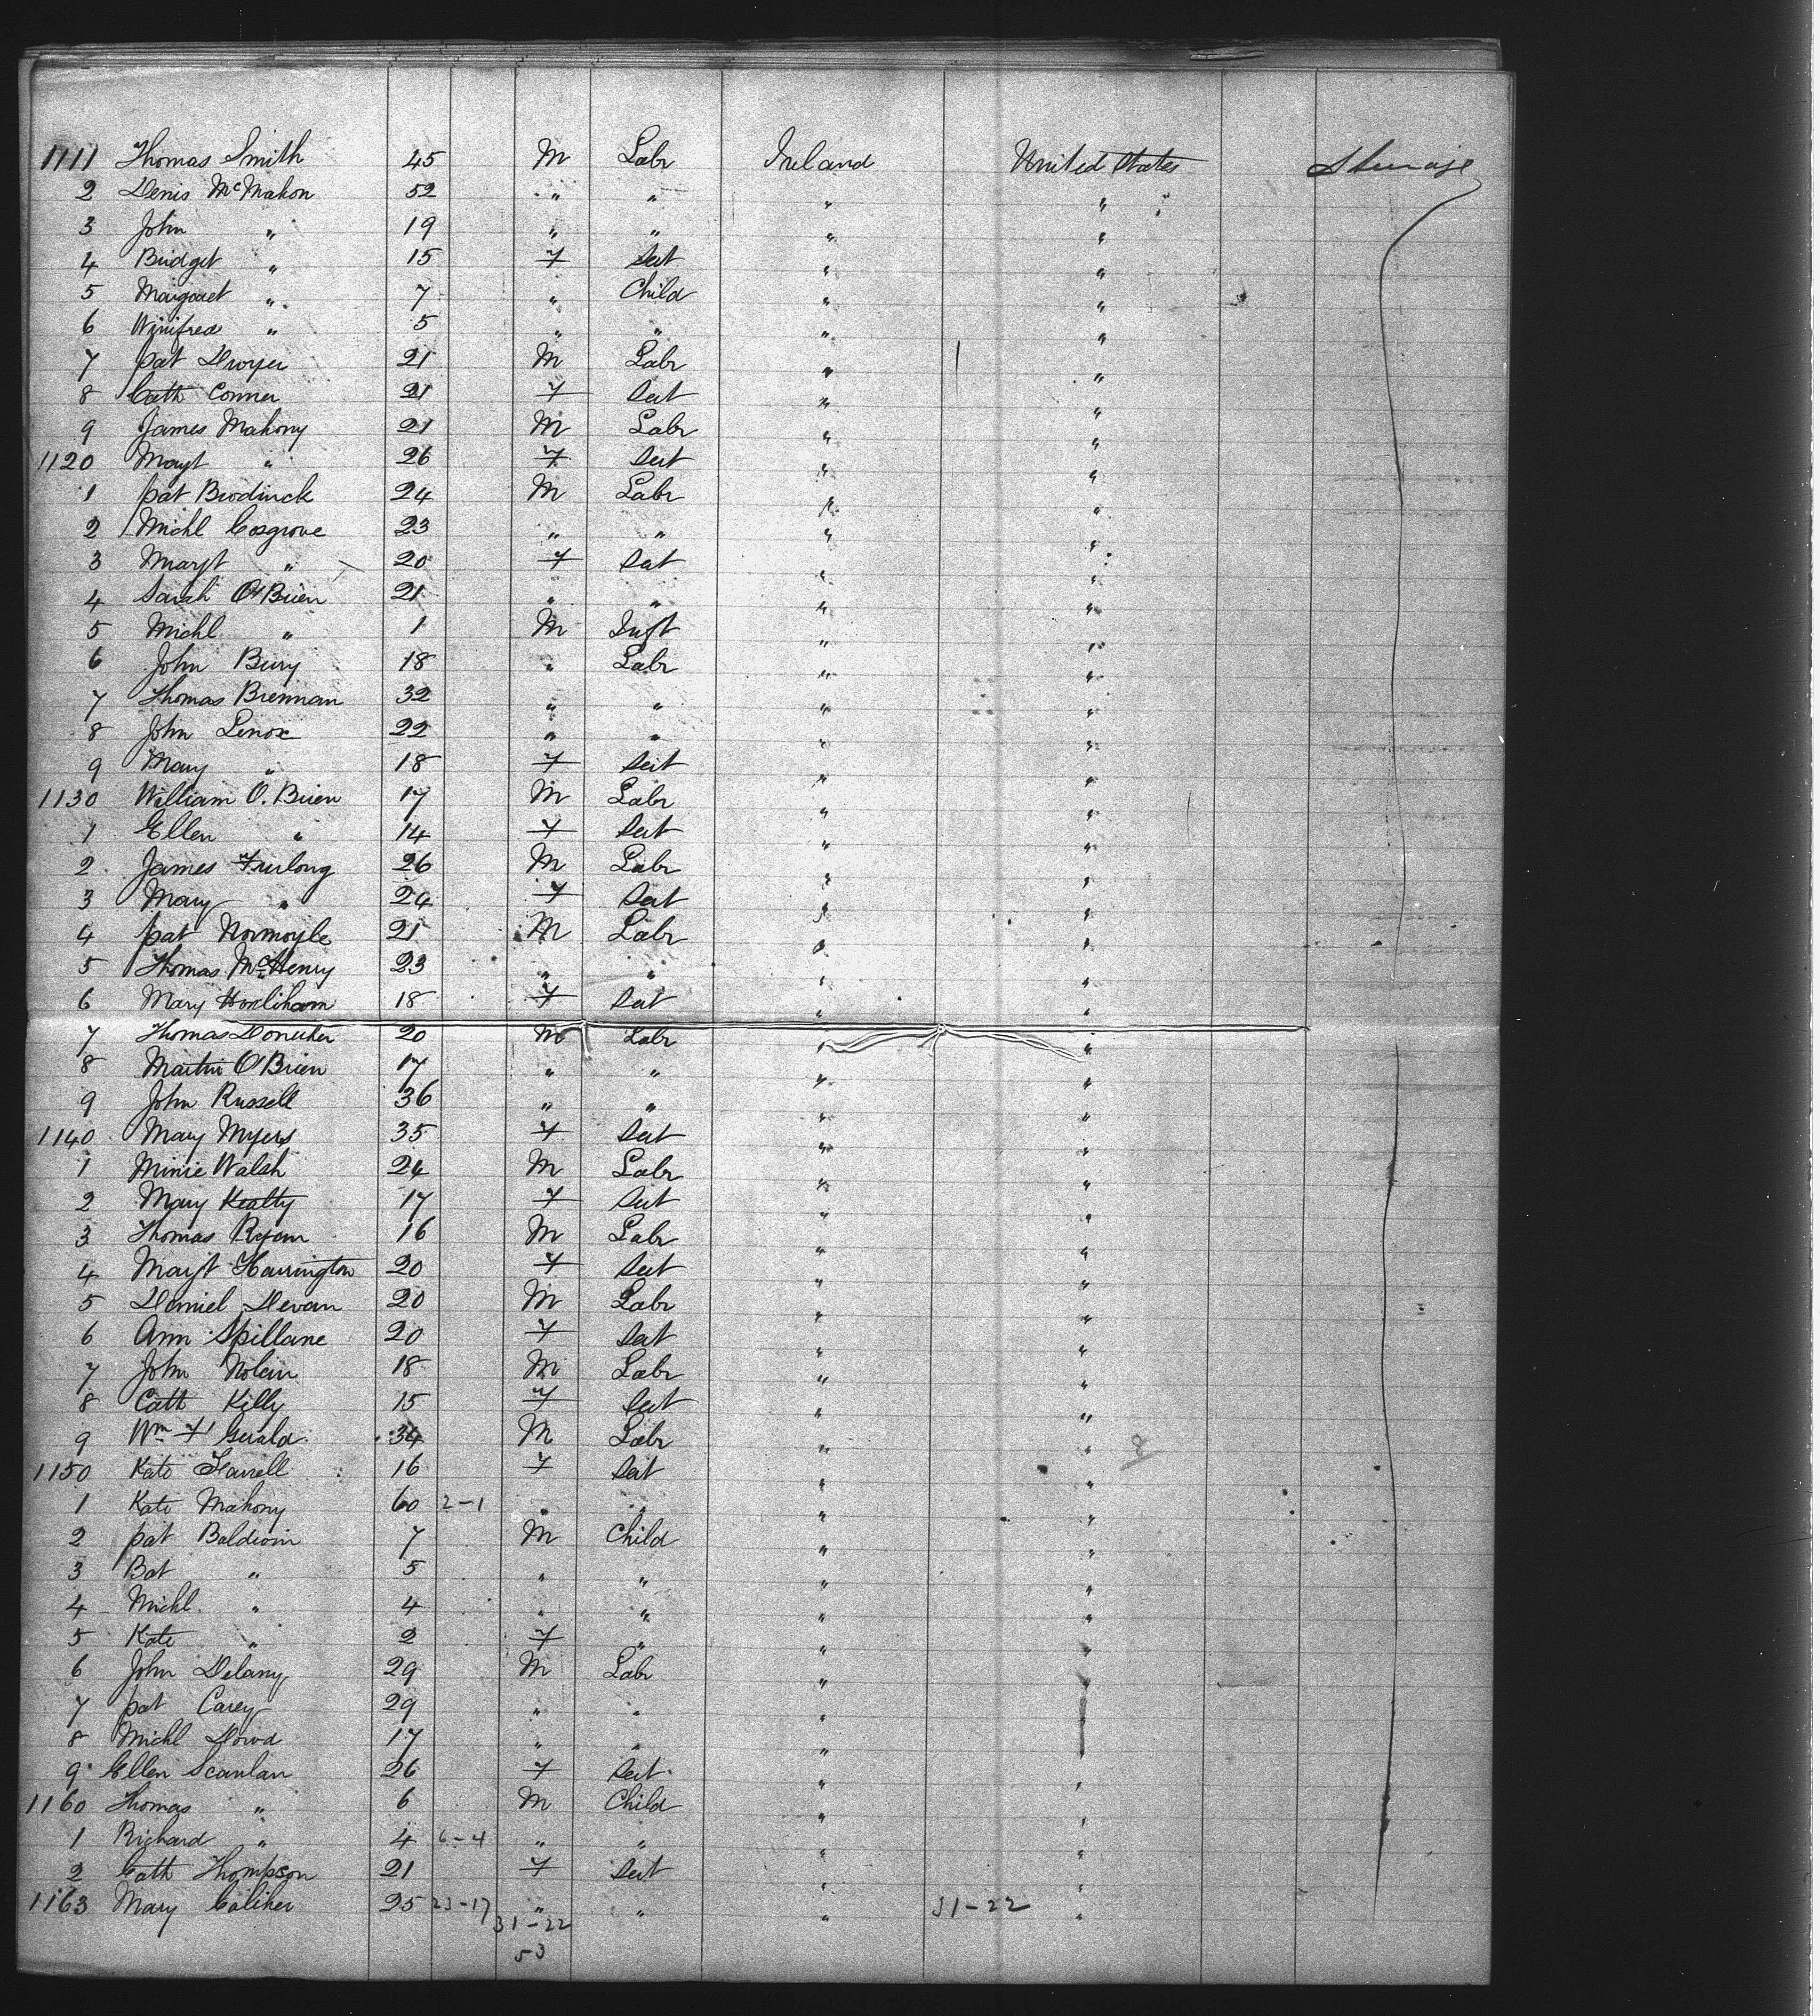 1111 Thomas Smith 45 M Labr Ireland United States Steerage
2 Denis McMahon 52 " " " "
3 John " 19 " " " "
4 Bridget " 15 F " "
5 Margaret " 7 " Child " "
6 Winifred " 5 " " " "
7 pat Dwyer 21 M Labr " "
8 Cath Conner 21 F " "
9 James Mahony 21 M Labr " "
1120 Margt " 26 F " "
1 pat Brodrick 24 M Labr " "
2 Michl Cosgrove 23 " " " "
3 Margt " 20 F " "
4 Sarah O'Brien 21 " " " "
5 Michl " 1 M Inft " "
6 John Bury 18 " Labr " "
7 Thomas Brennan 32 " " " "
8 John Lenox 22 " " " "
9 Mary " 18 F " "
1130 William O. Brien 17 M Labr " "
1 Ellen " 14 F " "
2 James Furlong 26 M Labr " "
3 Mary " 24 F " "
4 pat Normoyle 21 M Labr " "
5 Thomas McHenry 23 " " " "
6 Mary Honlihan 18 F " "
7 Thomas 20 M Labr " "
8 Martin O'Brien 17 " " " "
9 John Russell 36 " " " "
1140 Mary Myers 35 F " "
1 Minie Walsh 24 M Labr " "
2 Mary Kealty 17 F " "
3 Thomas Ryan 16 M Labr " "
4 Margt Harrington 20 F " "
5 Daniel Devan 20 M Labr " "
6 Ann Spillane 20 F " "
7 John Nolan 18 M Labr " "
8 Cath Killy 15 F " "
9 Wm F Gerald 34 M Labr " " 8
1150 Kate Farrell 16 F " "
1 Kate Mahony 60 2-1 " " " "
2 pat Baldwin 7 M Child " "
3 Bat " 5 " " " "
4 Michl " 4 " " " "
5 Kate " 2 F " " "
6 John Delany 29 M Labr " "
7 pat Carey 29 " " "
8 Michl Dowd 17 " " "
9 Ellen Scanlan 26 F " "
1160 Thomas " 6 M Child " "
1 Richard " 4 6-4 " " " "
2 Cath Thompson 21 F " "
1163 Mary Coliher 25 23-17 " " " 31-22 "
31-22
53